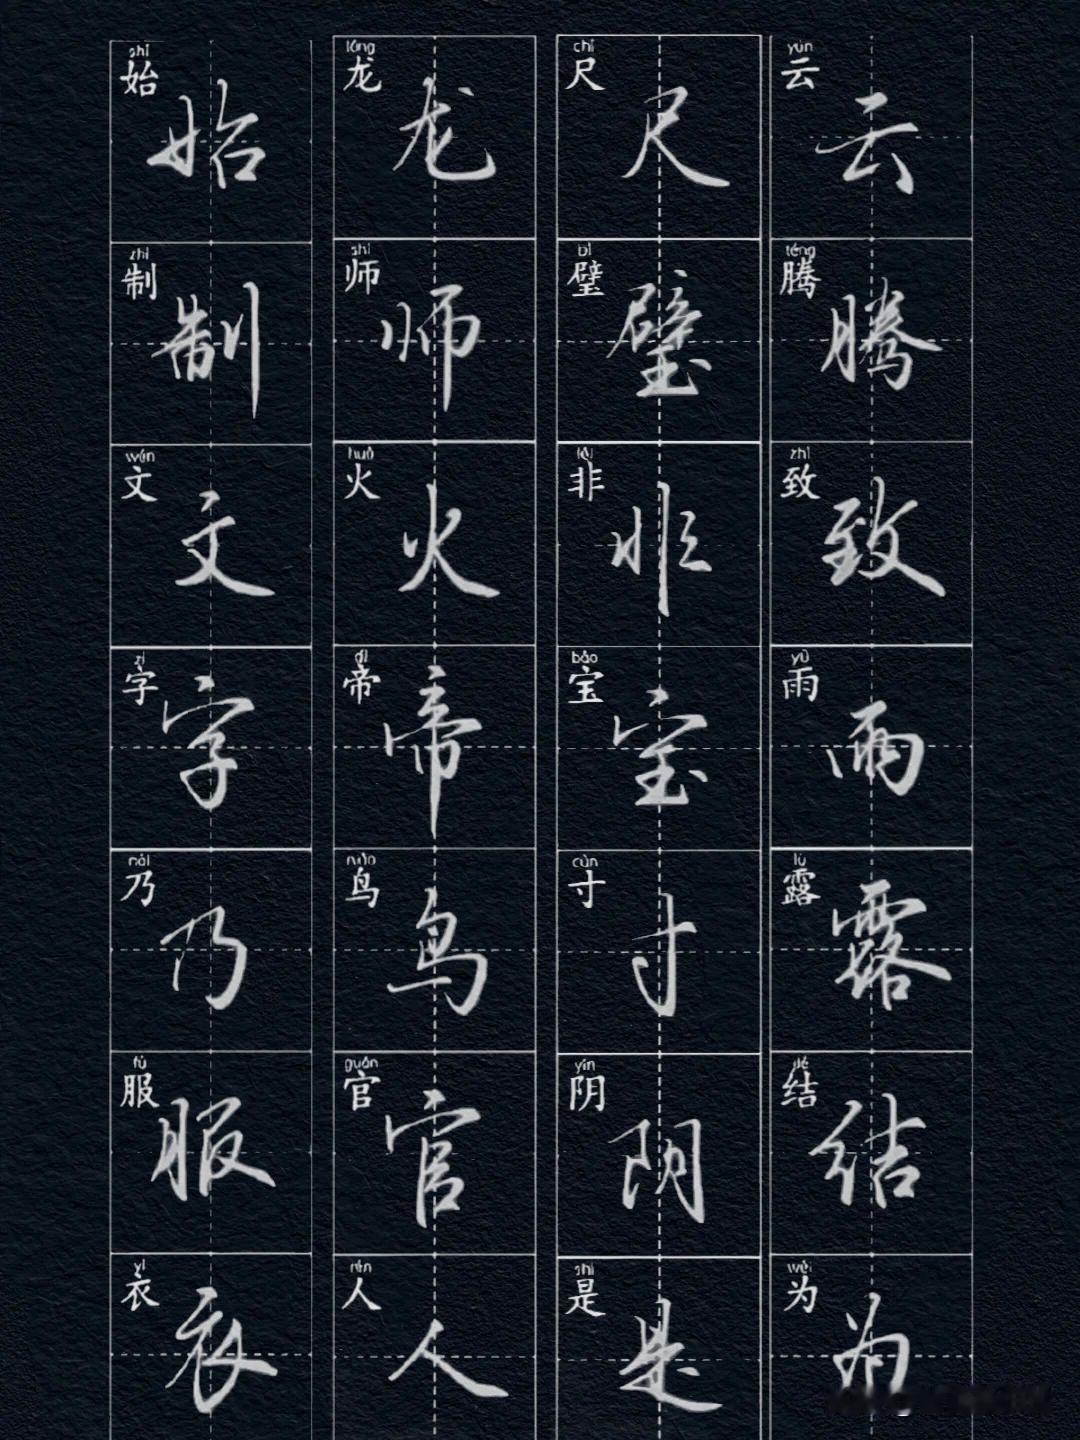 yún
云
云
téng
腾
腾
zhì
致
致
yǔ
雨
雨
lù
露
露
jié
结
结
wéi
为
为
chǐ
尺
尺
bì
璧
璧
fēi
非
非
bǎo
宝
宝
cùn
寸
寸
yīn
阴
阴
shì
是
是
lóng
龙
龙
shī
师
师
huǒ
火
火
dì
帝
帝
niǎo
鸟
鸟
guān
官
官
rén
人
人
shǐ
始
始
zhì
制
制
wén
文
文
zì
字
字
nǎi
乃
乃
fú
服
服
yī
衣
衣